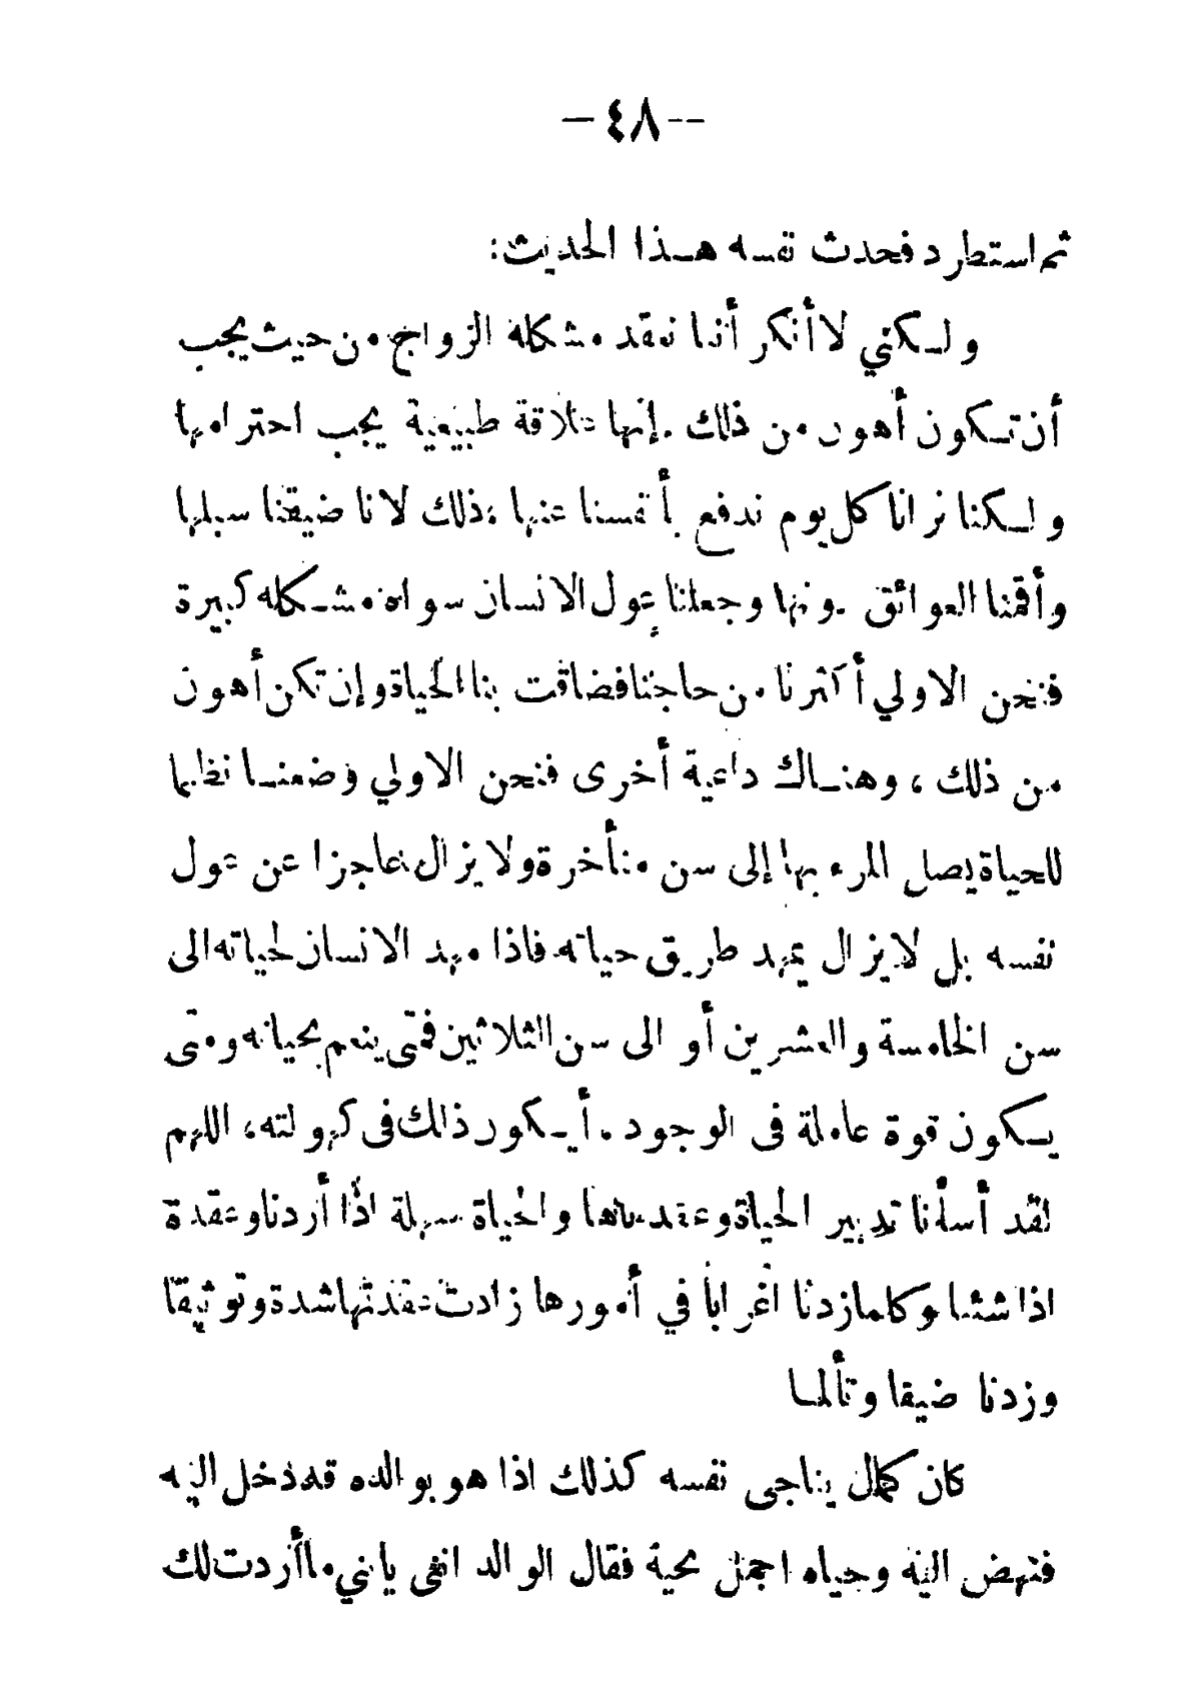 — ٤٨ --
ثم استطرد فحدث نفسه هذا الحديث:
ولكني لا أنكر أننا نعقد مشكلة الزواج من حيث يجب
أن تكون أهون من ذلك. إنها علاقة طبيعية يجب احترامها
ولكنا نرانا كل يوم ندفع بأنفسنا عنها، ذلك لانا ضيقنا سبلها
وأقمنا العوائق دونها وجعلنا عول الانسان سواه مشكله كبيرة
فنحن الاولي أكثرنا من حاجتنا فضاقت بنا الحياة وإن تكن أهون
من ذلك، وهناك داعية أخرى فنحن الاولي وضعنا نظاما
للحياة يصل المرء بها إلى سن متأخرة ولا يزال عاجزا عن عول
نفسه بل لا يزال يمهد طريق حياته فاذا مهد الانسان لحياته الى
سن الخامسة والعشرين أو الى سن الثلاثين فمتى ينعم بحياته ومتى
يكون قوة عاملة فى الوجود. أيكون ذلك فى كهولته، اللهم
لقد أسأنا تدبير الحياة وعقدناها والحياة سهلة اذا أردنا وعقدة
اذا شئنا وكلما زدنا اغرابا في أمورها زادت عقدتها شدة وتوثيقا
وزدنا ضيقا وتألما
كان كمال يناجى نفسه كذلك اذا هو بوالده قد دخل اليه
فنهض اليه وحياه اجمل تحية فقال الوالد انى يا بني ما أردت لك